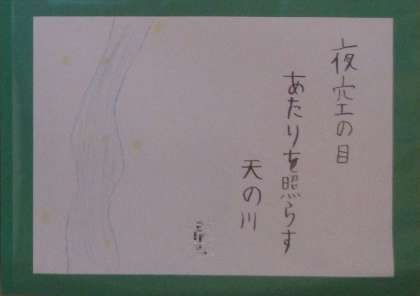 夜空の目
あたりを照らす
天の川